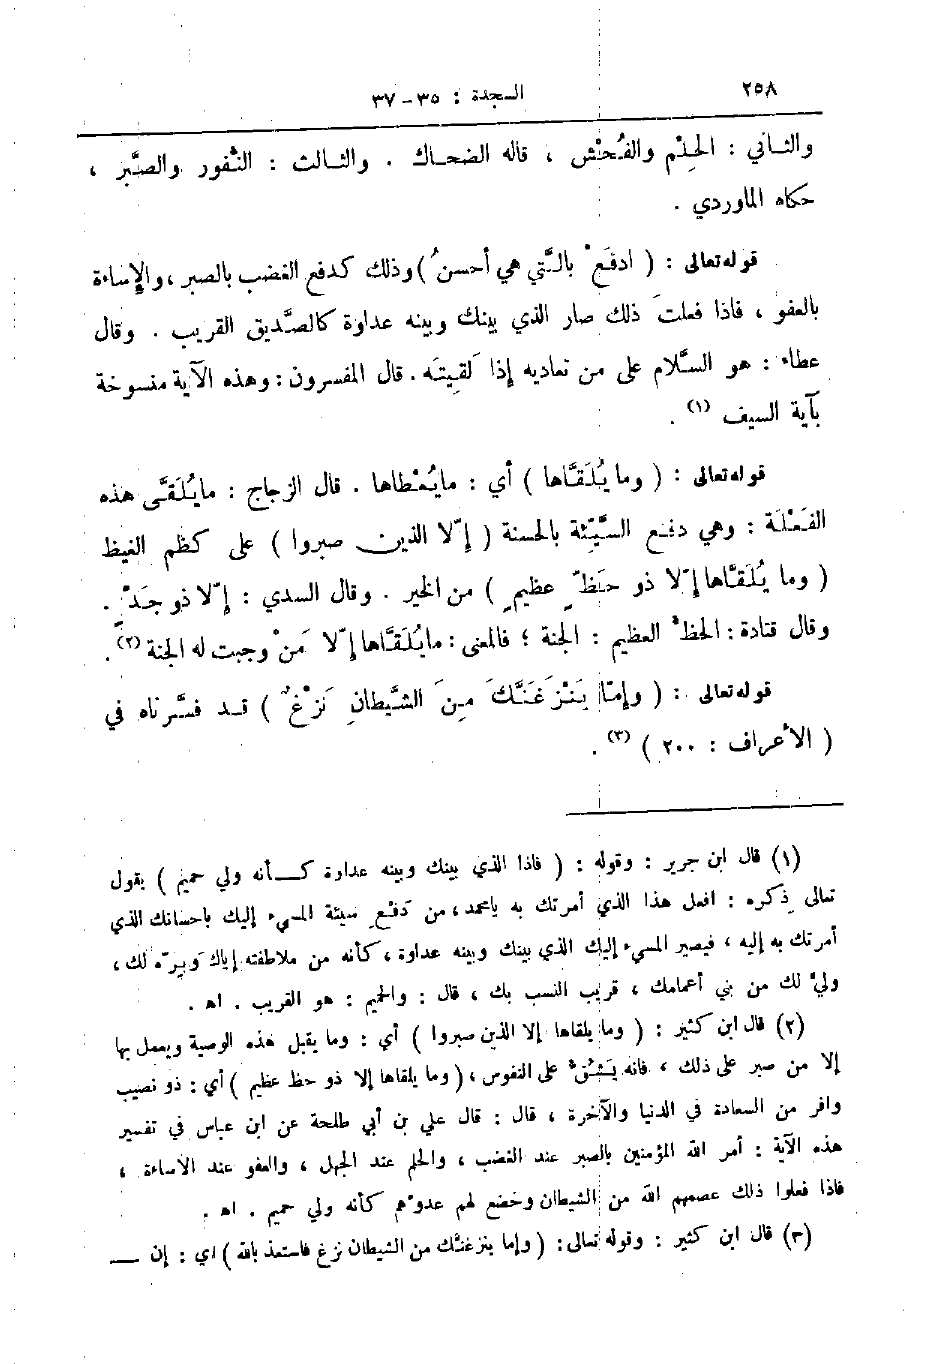 ٢٥٨
السجدة : ٣٥ – ٣٧
والثاني : الحِلْم والفُحْش ، قاله الضحاك . والثالث : النُّفور والصَّبر ،
حكاه الماوردي .
قوله تعالى : ( ادفَعْ بالَّتي هي أحسنُ ) وذلك كدفع الغضب بالصبر ، والإساءة
بالعفو ، فاذا فعلتَ ذلك صار الذي بينك وبينه عداوة كالصَّديق القريب . وقال
عطاء : هو السَّلام على من تعاديه إذا لَقِيتَه . قال المفسرون : وهذه الآية منسوخة
بآية السيف (١) .
قوله تعالى : ( وما يُلَقَّاها ) أي : مايُعْطاها . قال الزجاج : مايُلَقَّى هذه
الفَعْلَة : وهي دفع السَّيِّئة بالحسنة ( إلّا الذين صبروا ) على كظم الغيظ
( وما يُلَقَّاها إلّا ذو حَظٍّ عظيمٍ ) من الخير . وقال السدي : إلّا ذو جَدٍّ .
وقال قتادة : الحظُّ العظيم : الجنة ؛ فالمعنى : مايُلَقَّاها إلّا مَنْ وجبت له الجنة (٢) .
قوله تعالى : ( وإمّا يَنْزَغَنَّكَ مِنَ الشَّيطانِ نَزْغٌ ) قد فسَّرناه في
( الأعراف : ٢٠٠ ) (٣) .
(١) قال ابن جرير : وقوله : ( فاذا الذي بينك وبينه عداوة كــأنه ولي حميم ) يقول
تعالى ذِكره : افعل هذا الذي أمرتك به يامحمد ، من دَفْعِ سيئة المسيء إليك باحسانك الذي
أمرتك به إليه ، فيصير المسيء إليك الذي بينك وبينه عداوة ، كأنه من ملاطفته إياك وَبِرِّه لك ،
وليٌّ لك من بني أعمامك ، قريب النسب بك ، قال : والحميم : هو القريب . اه .
(٢) قال ابن كثير : ( وما يلقاها إلا الذين صبروا ) أي : وما يقبل هذه الوصية ويعمل بها
إلا من صبر على ذلك ، فانه يَشُقُّ على النفوس ، ( وما يلقاها إلا ذو حظ عظيم ) أي : ذو نصيب
وافر من السعادة في الدنيا والآخرة ، قال : قال علي بن أبي طلحة عن ابن عباس في تفسير
هذه الآية : أمر الله المؤمنين بالصبر عند الغضب ، والحلم عند الجهل ، والعفو عند الاساءة ،
فاذا فعلوا ذلك عصمهم الله من الشيطان وخضع لهم عدوُّهم كأنه ولي حميم . اه .
(٣) قال ابن كثير : وقوله تعالى : ( وإما ينزغنَّك من الشيطان نزغ فاستعذ بالله ) اي : إن —